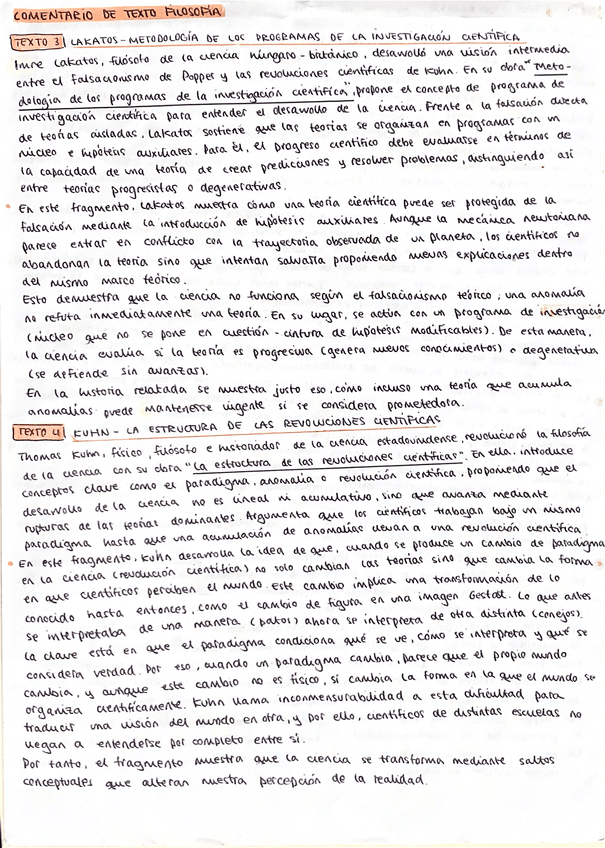 COMENTARIO DE TEXTO FILOSOFÍA
TEXTO 3 LAKATOS - METODOLOGÍA DE LOS PROGRAMAS DE LA INVESTIGACIÓN CIENTÍFICA
Imre Lakatos, filósofo de la ciencia húngaro-británico, desarrolló una visión intermedia
entre el falsacionismo de Popper y las revoluciones científicas de Kuhn. En su obra "Meto-
dología de los programas de la investigación científica", propone el concepto de programa de
investigación científica para entender el desarrollo de la ciencia. Frente a la falsación directa
de teorías aisladas, Lakatos sostiene que las teorías se organizan en programas con un
núcleo e hipótesis auxiliares. Para él, el progreso científico debe evaluarse en términos de
la capacidad de una teoría de crear predicciones y resolver problemas, distinguiendo así
entre teorías progresistas o degenerativas.
En este fragmento, Lakatos muestra cómo una teoría científica puede ser protegida de la
falsación mediante la introducción de hipótesis auxiliares. Aunque la mecánica newtoniana
parece entrar en conflicto con la trayectoria observada de un planeta, los científicos no
abandonan la teoría sino que intentan salvarla proponiendo nuevas explicaciones dentro
del mismo marco teórico.
Esto demuestra que la ciencia no funciona según el falsacionismo teórico; una anomalía
no refuta inmediatamente una teoría. En su lugar, se actúa con un programa de investigació
(núcleo que no se pone en cuestión - cintura de hipótesis modificables). De esta manera,
la ciencia evalúa si la teoría es progresiva (genera nuevos conocimientos) o degenerativa
(se defiende sin avanzar).
En la historia relatada se muestra justo eso, cómo incluso una teoría que acumula
anomalías puede mantenerse vigente si se considera prometedora.
TEXTO 4 KUHN - LA ESTRUCTURA DE LAS REVOLUCIONES CIENTÍFICAS
Thomas Kuhn, físico, filósofo e historiador de la ciencia estadounidense, revolucionó la filosofía
de la ciencia con su obra "La estructura de las revoluciones científicas". En ella, introduce
conceptos clave como el paradigma, anomalía o revolución científica, proponiendo que el
desarrollo de la ciencia no es lineal ni acumulativo, sino que avanza mediante
rupturas de las teorías dominantes. Argumenta que los científicos trabajan bajo un mismo
paradigma hasta que una acumulación de anomalías llevan a una revolución científica.
En este fragmento, Kuhn desarrolla la idea de que, cuando se produce un cambio de paradigma
en la ciencia (revolución científica) no solo cambian las teorías sino que cambia la forma
en que científicos perciben el mundo. Este cambio implica una transformación de lo
conocido hasta entonces, como el cambio de figura en una imagen Gestalt. Lo que antes
se interpretaba de una manera (patos) ahora se interpreta de otra distinta (conejos).
La clave está en que el paradigma condiciona qué se ve, cómo se interpreta y qué se
considera verdad. Por eso, cuando un paradigma cambia, parece que el propio mundo
cambia, y aunque este cambio no es físico, sí cambia la forma en la que el mundo se
organiza científicamente. Kuhn llama inconmensurabilidad a esta dificultad para
traducir una visión del mundo en otra, y por ello, científicos de distintas escuelas no
llegan a entenderse por completo entre sí.
Por tanto, el fragmento muestra que la ciencia se transforma mediante saltos
conceptuales que alteran nuestra percepción de la realidad.